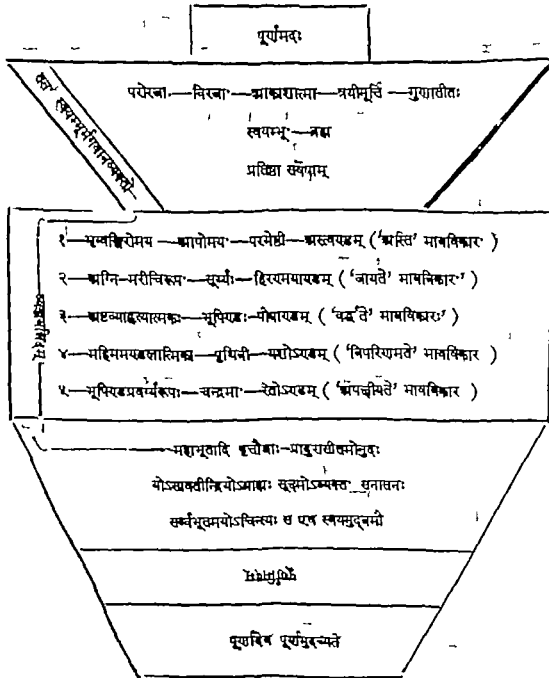 पूर्णमदः
ततः स्वयम्भूर्भगवानव्यक्तो
परोरजाः—विरजाः—आकाशात्मा—त्रयीमूर्त्तिः—गुणातीतः
स्वयम्भूः—ब्रह्म
प्रतिष्ठा सर्वेषाम्
१—भृग्वङ्गिरोमयः—आपोमयः—परमेष्ठी—अस्त्वण्डम् ('अस्ति' भावविकारः)
२—अग्नि-मरीचिरूपः—सूर्य्यः—हिरण्मयाण्डम् ('जायते' भावविकारः)
३—अष्टव्याहृत्यात्मकः—भूपिण्डः—पोषाण्डम् ('वर्द्धते' भावविकारः)
४—महिममण्डलात्मिका—पृथिवी—यशोऽण्डम् ('विपरिणमते' भावविकारः)
५—भूपिण्डप्रवर्ग्यरूपः—चन्द्रमाः—रेतोऽण्डम् ('अपक्षीयते' भावविकारः)
महाभूतादि वृत्तौजाः—प्रादुरासीत्तमोनुदः
योऽसावतीन्द्रियोऽग्राह्यः सूक्ष्मोऽव्यक्तः सनातनः
सर्व्वभूतमयोऽचिन्त्यः स एष स्वयमुद्बभौ
पूर्णमिदम्
पूर्णादेव पूर्णमुदच्यते